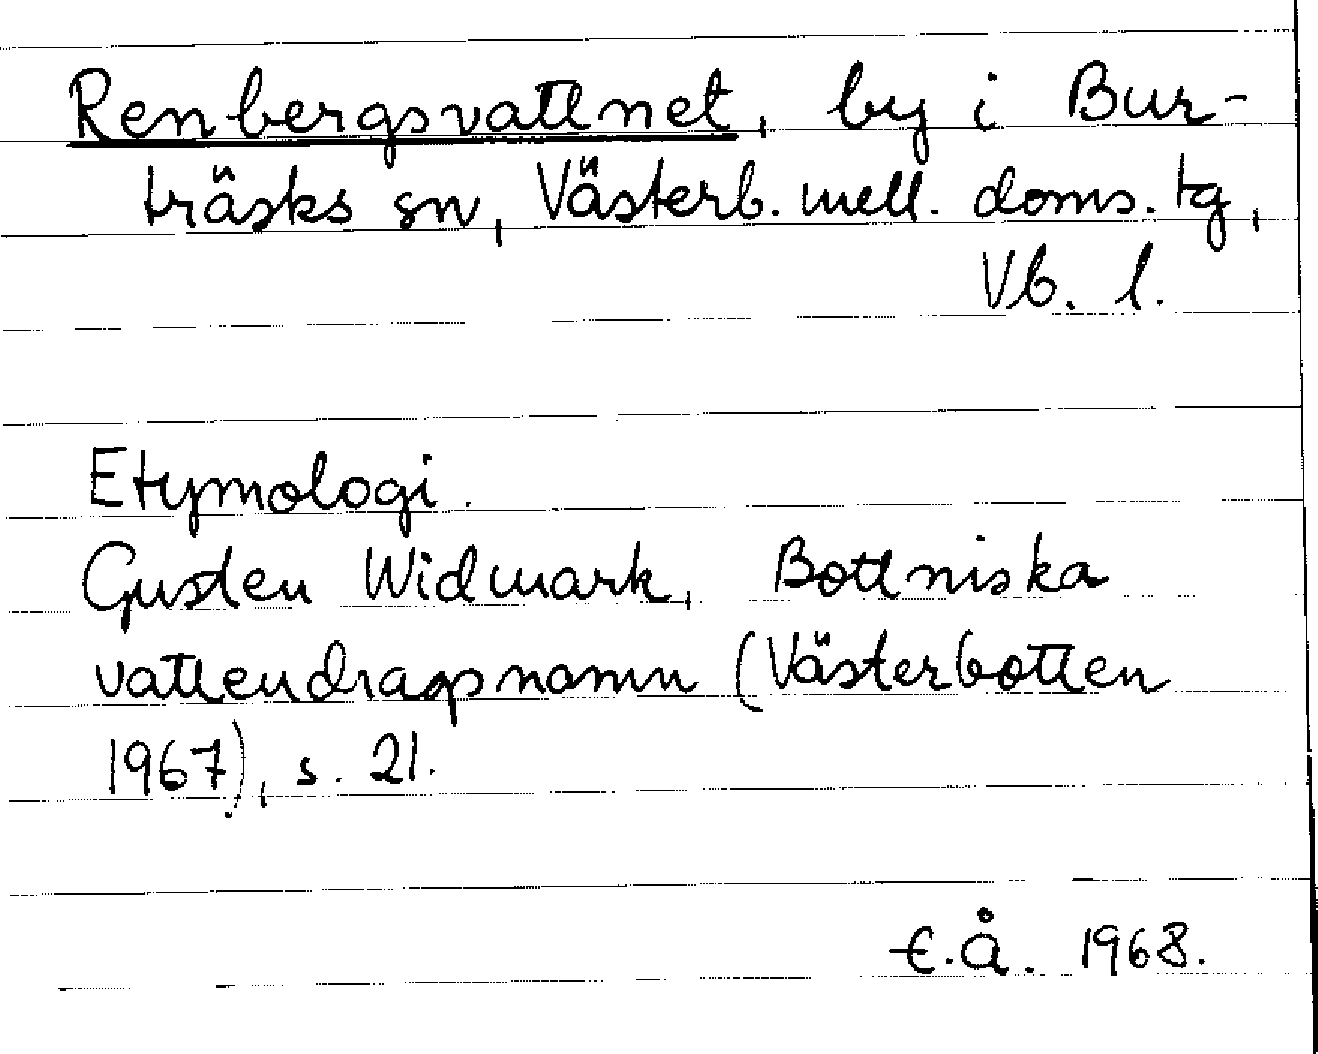 Renbergsvattnet, by i Bur-
träsks sn, Västerb. mell. doms. tg,
Vb. l.
Etymologi.
Gusten Widmark, Bottniska
vattendragsnamn (Västerbotten
1967), s. 21.
E.Å. 1968.